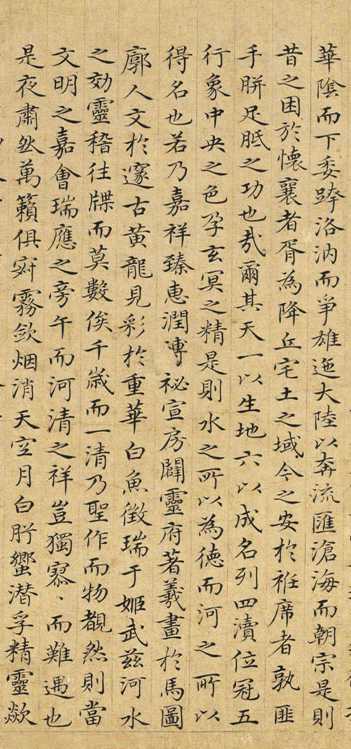 華陰而下委跨洛汭而爭雄迤大陸以奔流匯滄海而朝宗是則
昔之困於懷襄者胥為降丘宅土之域今之安於袵席者孰匪
手胼足胝之功也哉爾其天一以生地六以成名列四瀆位冠五
行象中央之色孕玄冥之精是則水之所以為德而河之所以
得名也若乃嘉祥臻惠潤溥祕宣房闢靈府著羲畫於馬圖
廓人文於邃古黃龍見彩於重華白魚徵瑞于姬武茲河水
之効靈稽往牒而莫數俟千歲而一清乃聖作而物覩然則當
文明之嘉會瑞應之旁午而河清之祥豈獨寥〻而難遇也
是夜肅然萬籟俱寂霧斂烟消天空月白肸蠁潛孚精靈歘